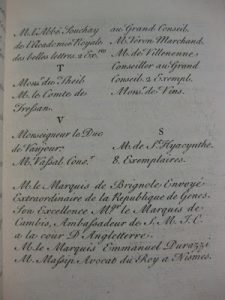 M. l'Abbé Souchay
de l'Academie Royale
des belles lettres. 2 Ex.res
T
Mons.r du Theil
M. le Comte de
Tressan.
V
Monseigneur le Duc
de Vaujour.
M. Vassal Cons.r
au Grand Conseil.
M. Veron Marchand.
M. de Villenenne
Conseiller au Grand
Conseil. 2 Exempl.
Mons.r de Vins.
S
M. de S.t Hyacynthe
8. Exemplaires.
M. le Marquis de Brignole Envoyé
Extraordinaire de la Republique de Genes.
Son Excellence M.gr le Marquis de
Cambis, Ambassadeur de S. M. T. C.
a la cour D'Angleterre.
M. le Marquis Emmanuel Durazzi
M. Massip Avocat du Roy a Nismes.